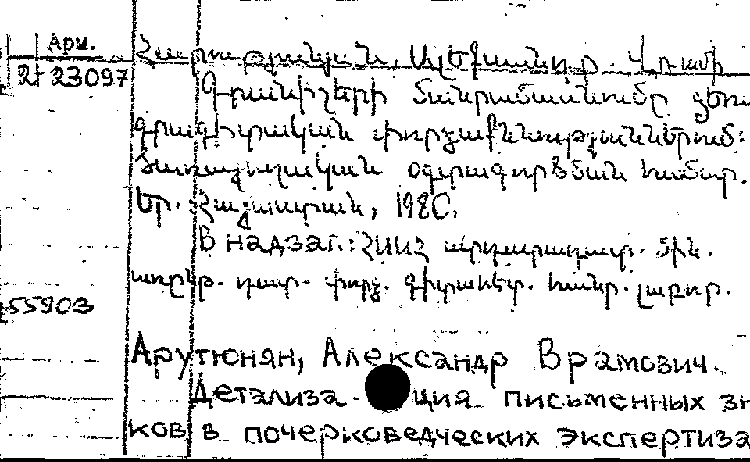 Арм.
2† 23097
Հարությունյան, Ալեքսանդր Վռամի
Գրանիշերի մանրամասնումը ձեռա
գրագիտական փորձաքննություններում:
Ծառայողական օգտագործման համար.
Եր. Հայաստան, 1980.
В надзаг.: ՀՍՍՀ արդարադատ. մին.
առընթ. դատ. փորձ. գիտահետ. համր. լաբոր.
55903
Арутюнян, Александр Врамович.
Детализация письменных зн
ков в почерковедческих экспертиза